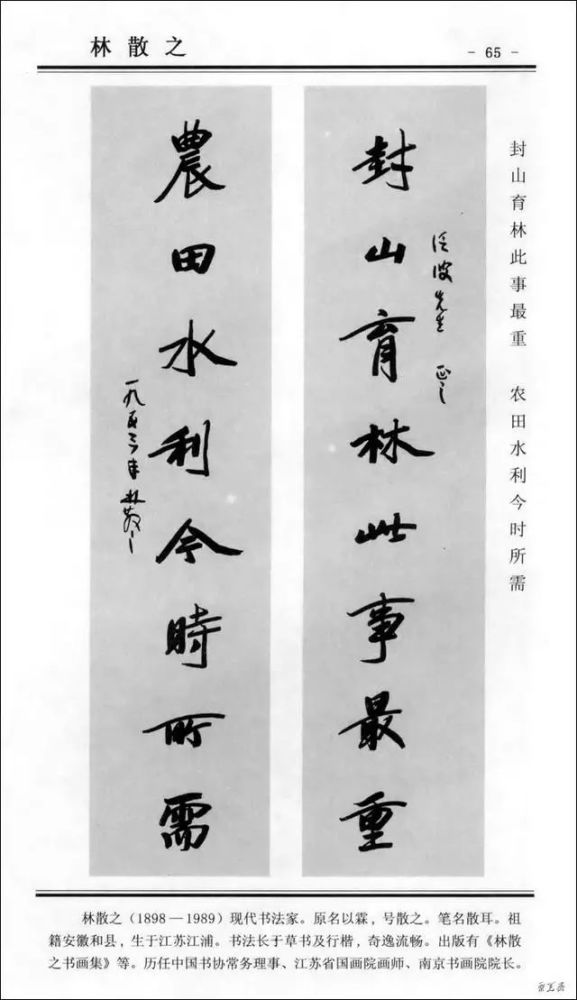 林散之
- 65 -
封山育林此事最重 农田水利今时所需
封山育林此事最重
波先生 正之
農田水利今時所需
一九五三年 林散之
林散之（1898—1989）现代书法家。原名以霖，号散之。笔名散耳。祖
籍安徽和县，生于江苏江浦。书法长于草书及行楷，奇逸流畅。出版有《林散
之书画集》等。历任中国书协常务理事、江苏省国画院画师、南京书画院院长。